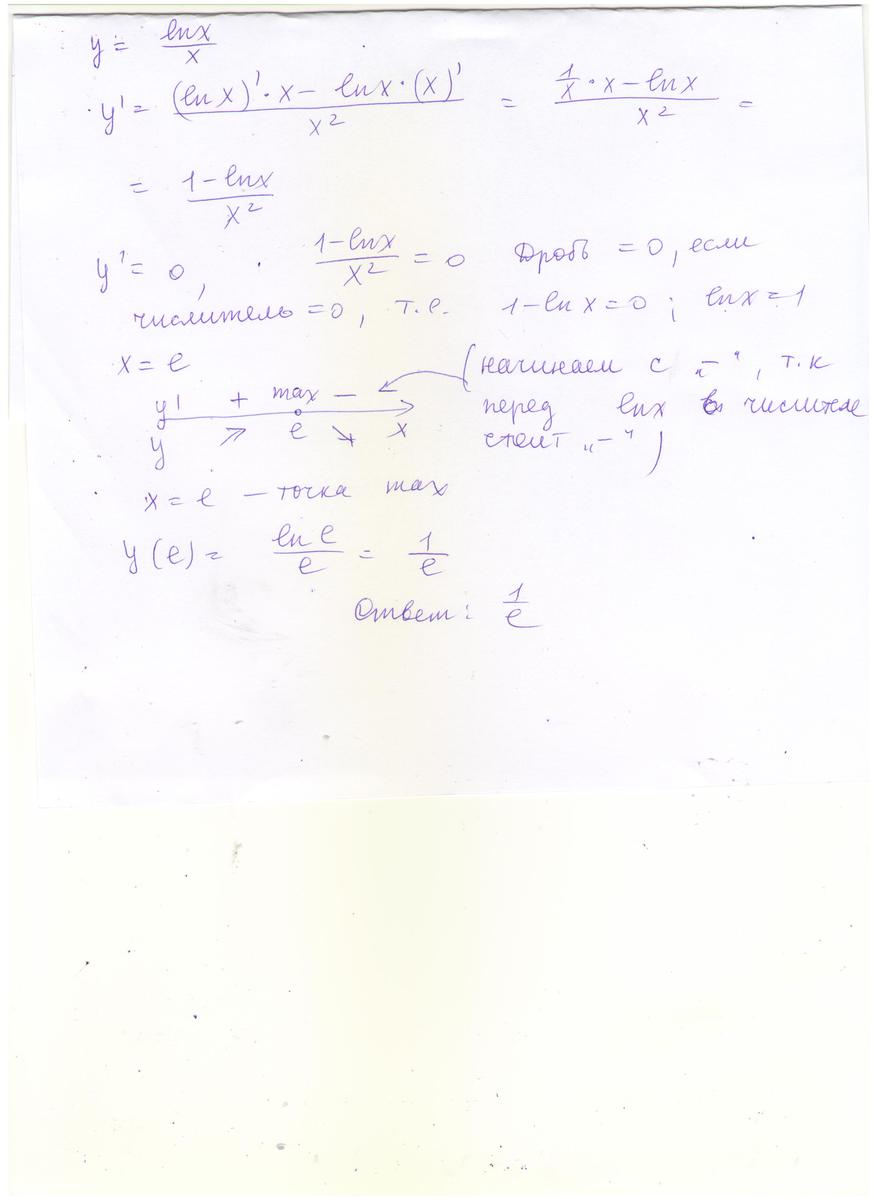 y = lnx/x
y' = ((ln x)' · x − lnx · (x)')/x² = (1/x · x − lnx)/x² =
= (1 − lnx)/x²
y' = 0, (1−lnx)/x² = 0 Дробь = 0, если
числитель = 0, т.е. 1−ln x = 0; lnx = 1
x = e
(начинаем с „−“, т.к
y' + max −
перед lnx в числителе
y ↗ e ↘ x
стоит „−“)
x = e — точка max
y(e) = ln e/e = 1/e
Ответ: 1/e